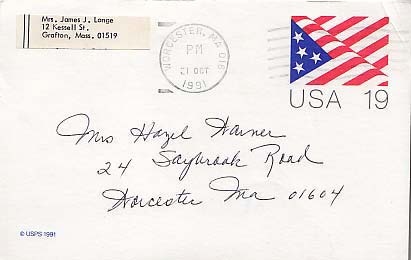 Mrs. James J. Lange
12 Kessell St.
Grafton, Mass. 01519
WORCESTER, MA 016
PM
21 OCT
1991
USA 19
Mrs Hazel Warner
24 Saybrook Road
Worcester Ma 01604
© USPS 1991